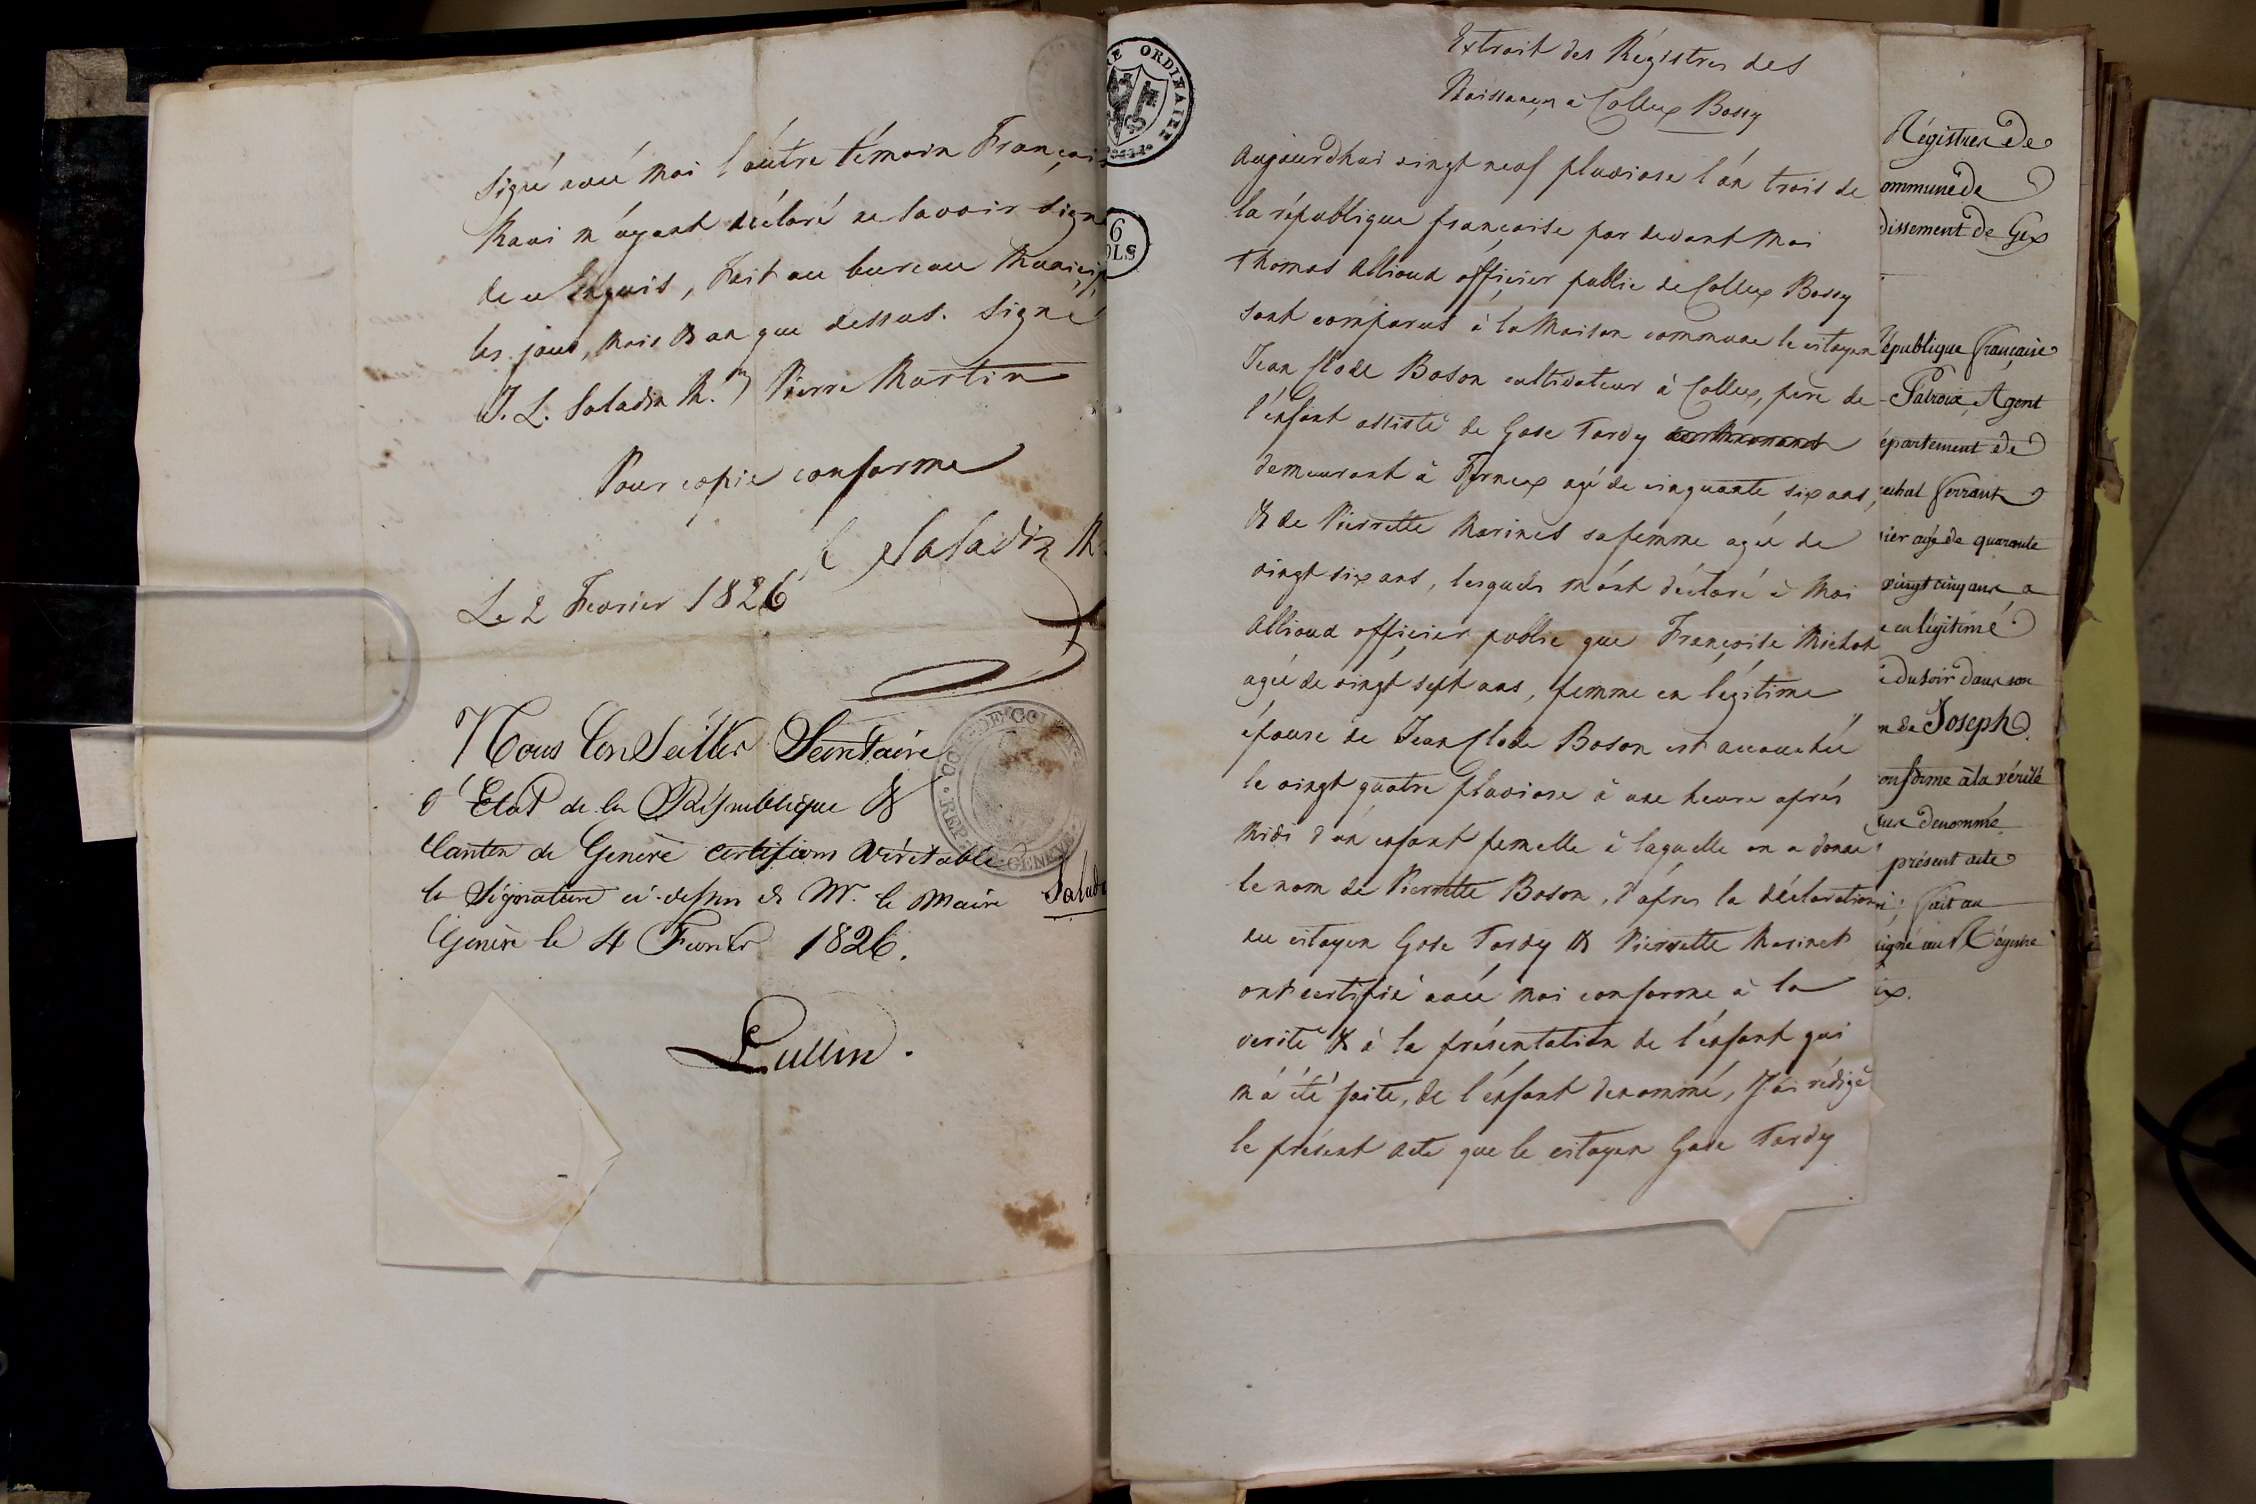 signé avec moi l'autre témoin Françai
Ravi m'ayant déclaré ne savoir signe
de ce enquis, fait au bureau Municip
les jour, mois & an que dessus. Signé
J. L. Saladin M. Pierre Martin
Pour copie conforme
Saladin M
Le 2 Fevrier 1826
Nous Conseiller Secretaire
d'Etat de la République &
Canton de Genève certifions véritable
la Signature ci-dessus de Mr. le Maire Salad
Genève le 4 Fevrier 1826.
Lullin.
DE COL
REP GENEV
RE ORDINAIRE
6
OLS
Extrait des Régistres des
Naissances à Collex Bossy
Aujourdhui vingt neuf pluviose l'an trois de
la république française par devant moi
Thomas Allioud officier public de Collex Bossy
sont comparus à la Maison commune le citoyen
Jean Clode Boson cultivateur à Collex, père de
l'enfant assisté de Gase Tardy
demeurant à Fernex agé de cinquante six ans,
& de Pierrette Marinet sa femme agée de
vingt six ans, lesquels m'ont déclaré à Moi
Allioud officier public que Françoise Michot
agée de vingt sept ans, femme en légitime
épouse de Jean Clode Boson est accouchée
le vingt quatre pluviose à une heure après
midi d'un enfant femelle à laquelle on a donné
le nom de Pierrette Boson, d'après la déclaration
du citoyen Gase Tardy & Pierrette Marinet
ont certifié avec moi conforme à la
verité & à la présentation de l'enfant qui
m'a été faite, de l'enfant denommé, J'ai rédigé
le présent acte que le citoyen Gase Tardy
Régistres de
ommune de
dissement de Gex
République française
Patroix, Agent
épartement de
échal ferrant
ier agé de quarante
vingt cinq ans, a
e en légitime
e du soir dans son
m de Joseph.
onforme à la vérité
us denommé
présent acte
i; fait au
signé au Régistre
ix.